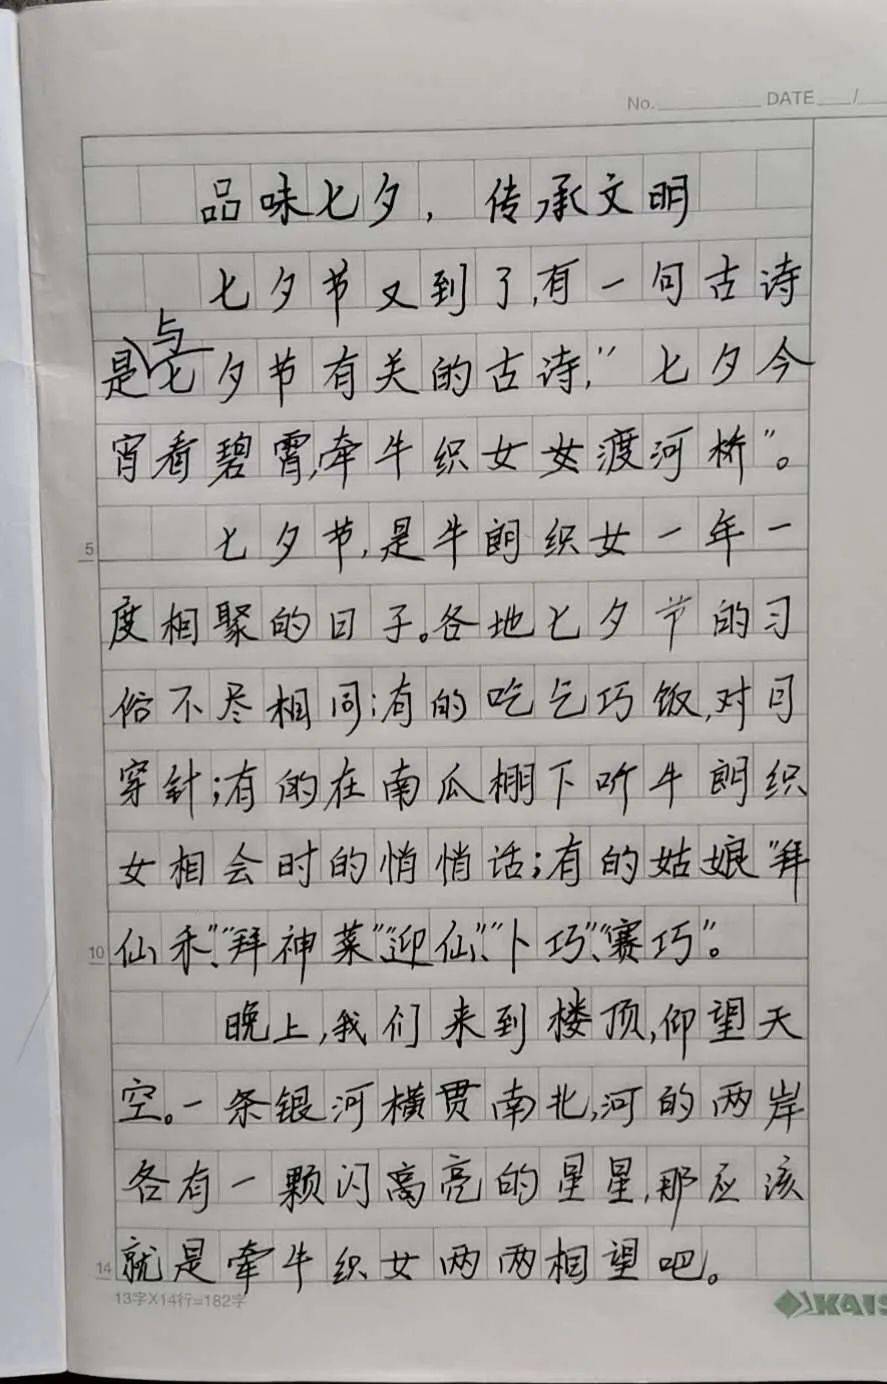 No. DATE /
品味七夕，传承文明
七夕节又到了,有一句古诗
是与七夕节有关的古诗,“七夕今
宵看碧霄,牵牛织女女渡河桥”。
5 七夕节,是牛朗织女一年一
度相聚的日子。各地七夕节的习
俗不尽相同;有的吃乞巧饭,对月
穿针;有的在南瓜棚下听牛朗织
女相会时的悄悄话;有的姑娘“拜
10 仙禾”、“拜神菜”、“迎仙”、“卜巧”、“赛巧”。
晚上,我们来到楼顶,仰望天
空。一条银河横贯南北,河的两岸
各有一颗闪亮的星星,那应该
14 就是牵牛织女两两相望吧。
13字X14行=182字
KAIS